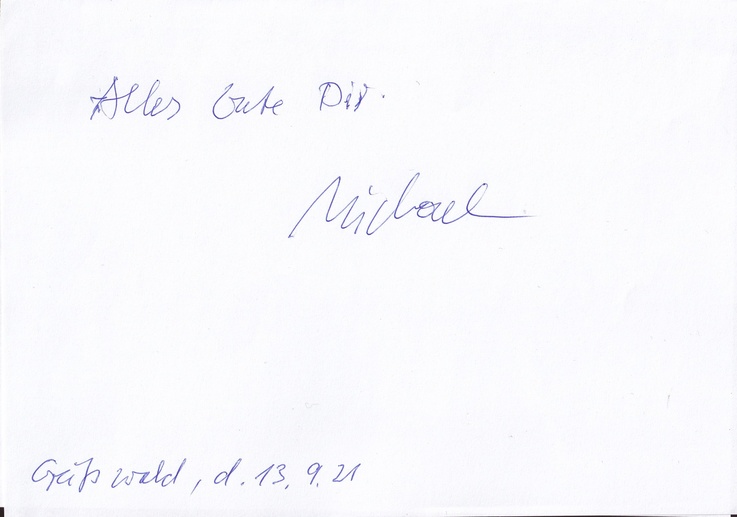 Alles Gute Dir.
Michael
Greifswald, d. 13.9.21